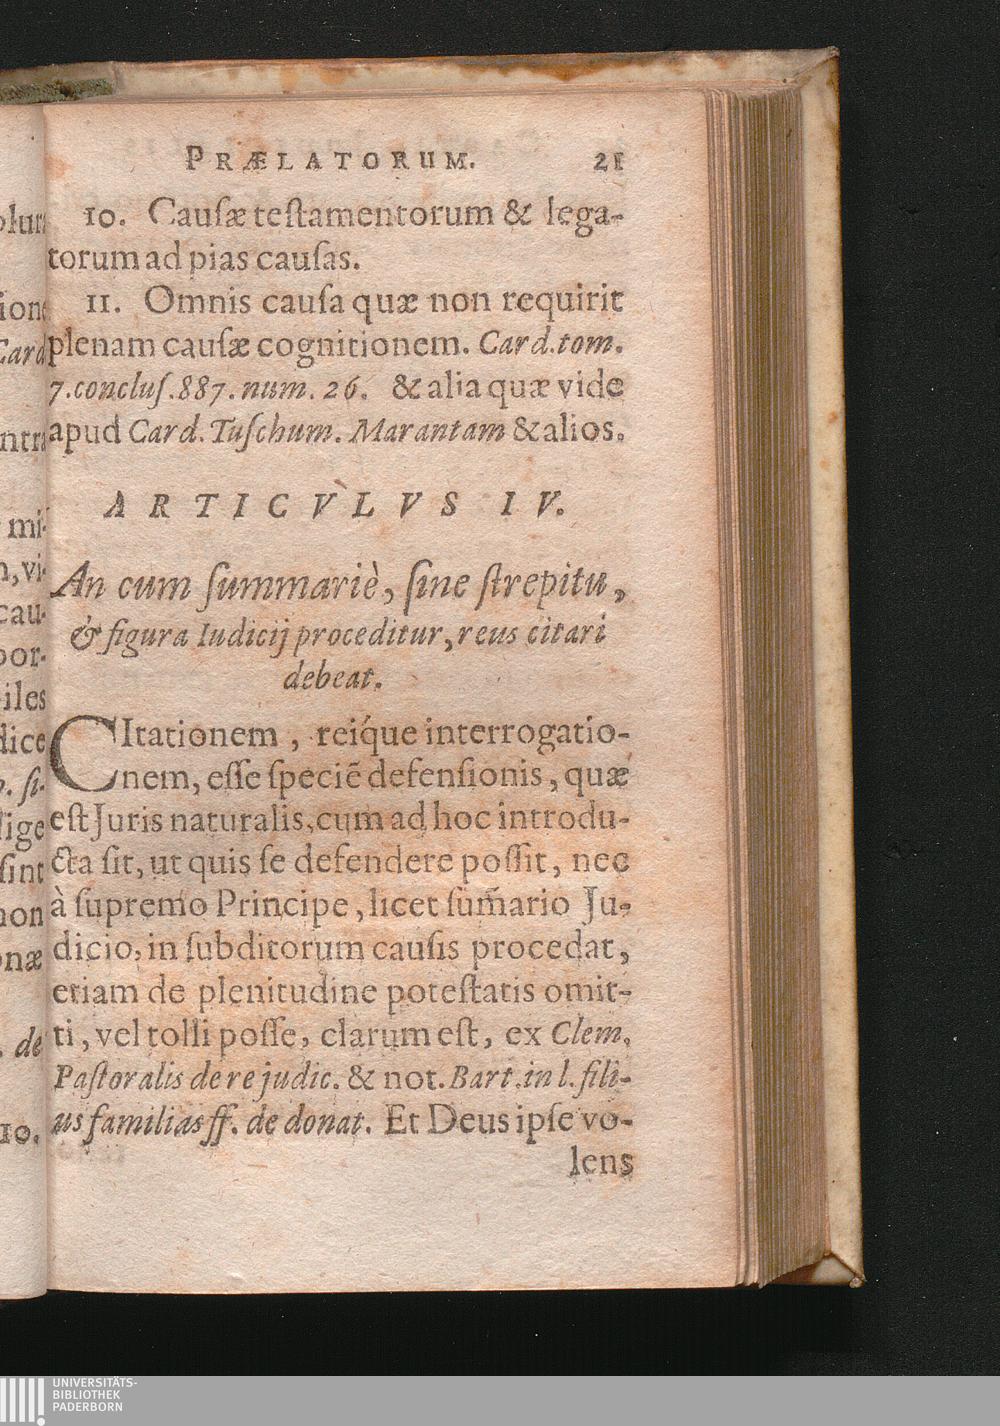 PRÆLATORUM. 21
10. Cauſæ teſtamentorum & lega-
torum ad pias cauſas.
11. Omnis cauſa quæ non requirit
plenam cauſæ cognitionem. Card. tom.
7. concluſ. 887. num. 26. & alia quæ vide
apud Card. Tuſchum. Marantam & alios.
ARTICVLVS IV.
An cum ſummariè, ſine ſtrepitu,
& figura Iudicij proceditur, reus citari
debeat.
CItationem, reiq́ue interrogatio-
nem, eſſe ſpeciē defenſionis, quæ
eſt Juris naturalis, cum ad hoc introdu-
cta ſit, ut quis ſe defendere poſſit, nec
à ſupremo Principe, licet ſum̃ario Ju-
dicio, in ſubditorum cauſis procedat,
etiam de plenitudine poteſtatis omit-
ti, vel tolli poſſe, clarum eſt, ex Clem.
Paſtoralis de re judic. & not. Bart. in l. fili-
us familias ff. de donat. Et Deus ipſe vo-
lens
UNIVERSITÄTS-
BIBLIOTHEK
PADERBORN